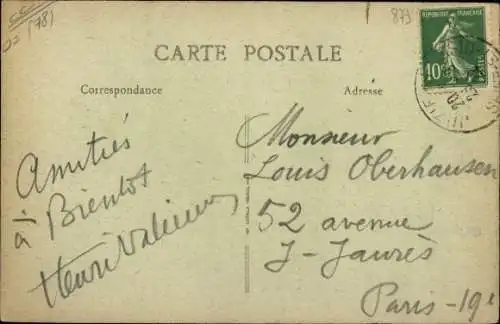 (78)
873
CARTE POSTALE
RÉPUBLIQUE FRANÇAISE
10c
POSTES
Correspondance
Adresse
Amitiés
à Bientot
Henri
Monsieur
Louis Oberhausen
52 avenue
J-Jaurès
Paris-19e